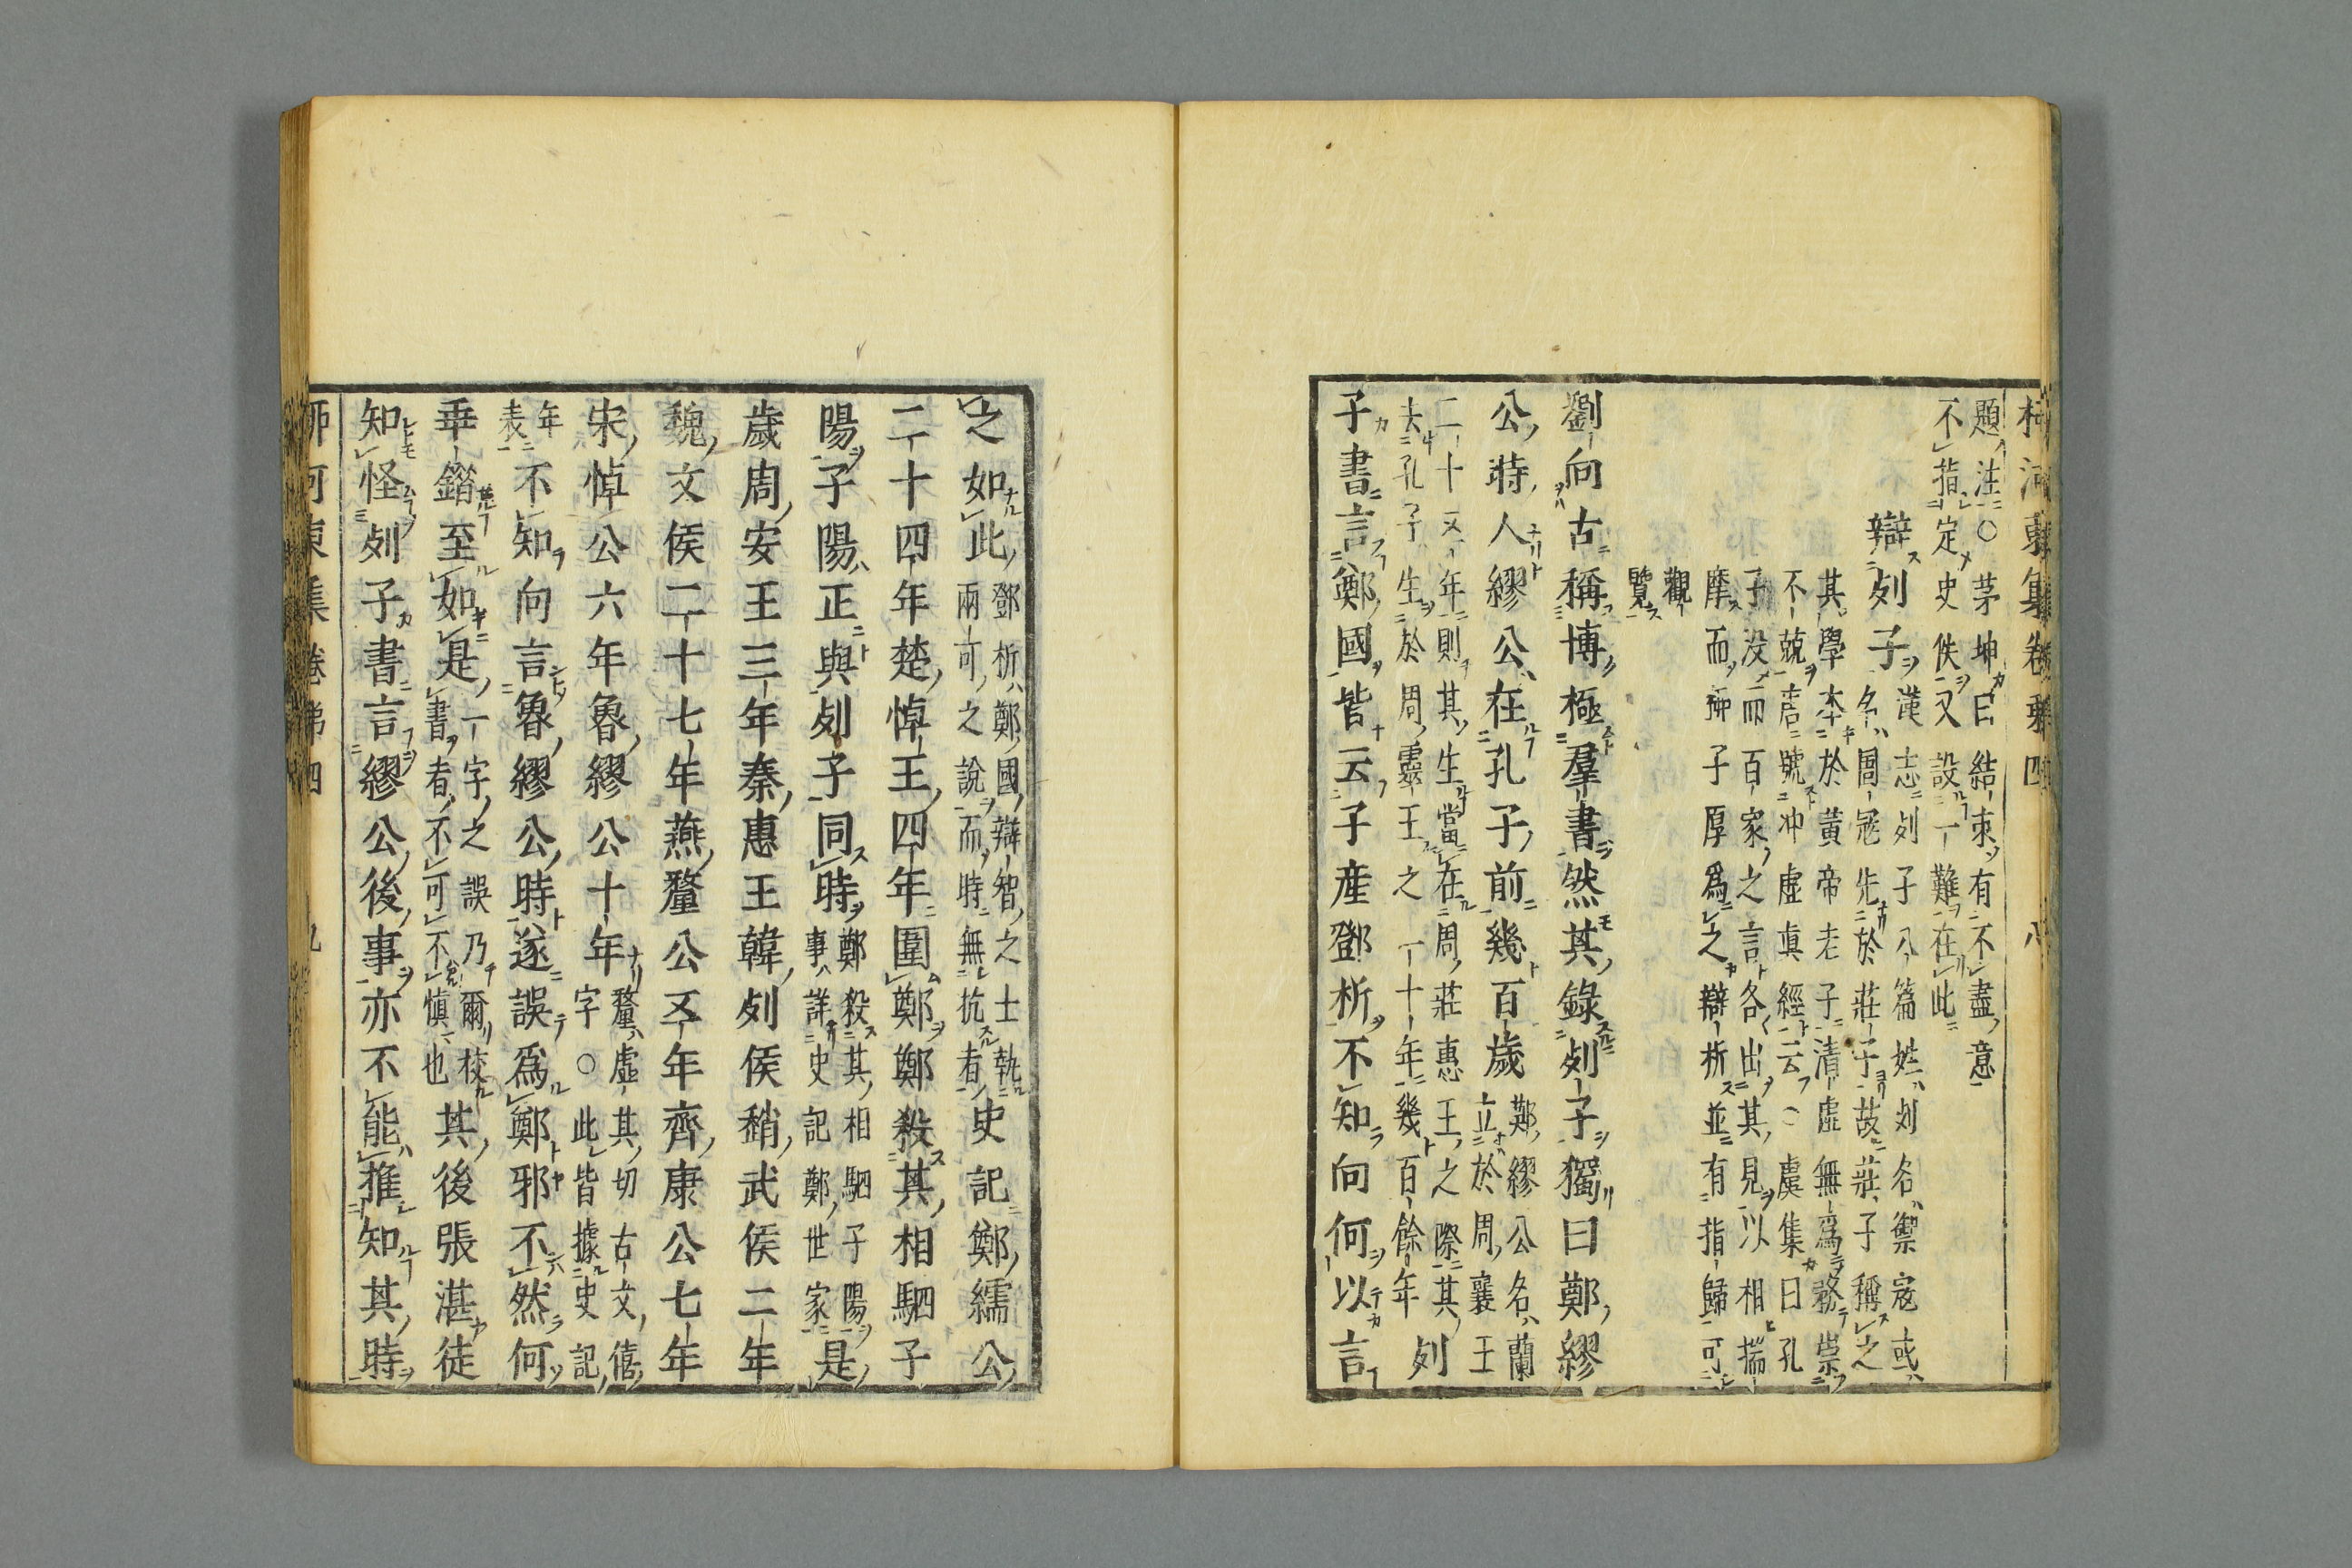 柳河東集卷第四 八
題注○茅坤曰結束有不盡意
不指定史佚又設一難在此
辯列子
漢志列子八篇姓列名禦寇或
名圄寇先於莊子故莊子稱之
其學本於黃帝老子清虛無爲務崇
不競唐號冲虛真經云○虞集曰孔
子沒而百家之言各出其見以相揣
摩而柳子厚爲之辯析並有指歸可
觀
覽
劉向古稱博極羣書然其錄列子獨曰鄭繆
公時人繆公在孔子前幾百歲
鄭繆公名蘭
立於周襄王
二十五年則其生當在周莊惠王之際其
去孔子生於周靈王之二十年幾百餘年
列
子書言鄭國皆云子產鄧析不知向何以言
之如此
鄧析鄭國辯智之士執
兩可之說而時無抗者
史記鄭繻公
二十四年楚悼王四年圍鄭鄭殺其相駟子
陽子陽正與列子同時
鄭殺其相駟子陽
事詳史記鄭世家
是
歲周安王三年秦惠王韓列侯趙武侯二年
魏文侯二十七年燕釐公五年齊康公七年
宋悼公六年魯繆公十年
釐虛其切古文僖
字○此皆據史記
年
表
不知向言魯繆公時遂誤爲鄭邪不然何
乖錯至如是
一字之誤乃爾校
書者不可不慎也
其後張湛徒
知怪列子書言繆公後事亦不能推知其時
柳河東集卷第四 九